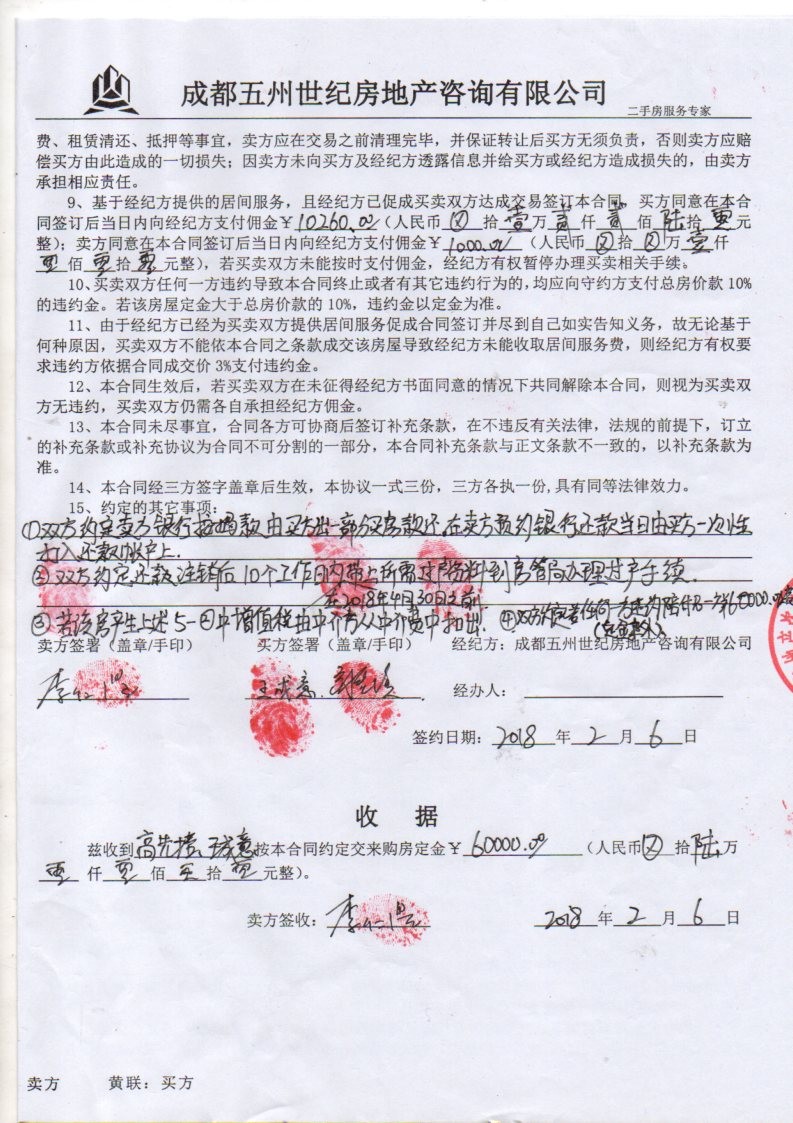 成都五州世纪房地产咨询有限公司
二手房服务专家
费、租赁清还、抵押等事宜，卖方应在交易之前清理完毕，并保证转让后买方无须负责，否则卖方应赔
偿买方由此造成的一切损失；因卖方未向买方及经纪方透露信息并给买方或经纪方造成损失的，由卖方
承担相应责任。
9、基于经纪方提供的居间服务，且经纪方已促成买卖双方达成交易签订本合同，买方同意在本合
同签订后当日内向经纪方支付佣金￥10260.00（人民币 ⊗ 拾 壹 万 贰 仟 贰 佰 陆 拾 零 元
整）；卖方同意在本合同签订后当日内向经纪方支付佣金￥1000.00（人民币 ⊗ 拾 ⊗ 万 壹 仟
零 佰 零 拾 零 元整），若买卖双方未能按时支付佣金，经纪方有权暂停办理买卖相关手续。
10、买卖双方任何一方违约导致本合同终止或者有其它违约行为的，均应向守约方支付总房价款 10%
的违约金。若该房屋定金大于总房价款的 10%，违约金以定金为准。
11、由于经纪方已经为买卖双方提供居间服务促成合同签订并尽到自己如实告知义务，故无论基于
何种原因，买卖双方不能依本合同之条款成交该房屋导致经纪方未能收取居间服务费，则经纪方有权要
求违约方依据合同成交价 3%支付违约金。
12、本合同生效后，若买卖双方在未征得经纪方书面同意的情况下共同解除本合同，则视为买卖双
方无违约，买卖双方仍需各自承担经纪方佣金。
13、本合同未尽事宜，合同各方可协商后签订补充条款，在不违反有关法律，法规的前提下，订立
的补充条款或补充协议为合同不可分割的一部分，本合同补充条款与正文条款不一致的，以补充条款为
准。
14、本合同经三方签字盖章后生效，本协议一式三份，三方各执一份,具有同等法律效力。
15、约定的其它事项：
①双方约定卖方银行按揭款由买方出一部分房款还在卖方预约银行还款当日由买方一次性
打入还款账户上.
②双方约定还款注销后10个工作日内带上所需过户资料到房管局办理过户手续.
在2018年4月30日之前.
③若该房产生上述5-②中增值税由中介方从中介费中扣出. ④双方约定若任何一方违约赔付 60000.
(定金除外)
卖方签署（盖章/手印） 买方签署（盖章/手印） 经纪方：成都五州世纪房地产咨询有限公司
李仁 王成意. 经办人：
签约日期：2018 年 2 月 6 日
收 据
兹收到 高先 按本合同约定交来购房定金￥ 60000.00 （人民币 ⊗ 拾 陆 万
零 仟 零 佰 零 拾 零 元整）。
卖方签收： 李仁 2018 年 2 月 6 日
卖方 黄联：买方